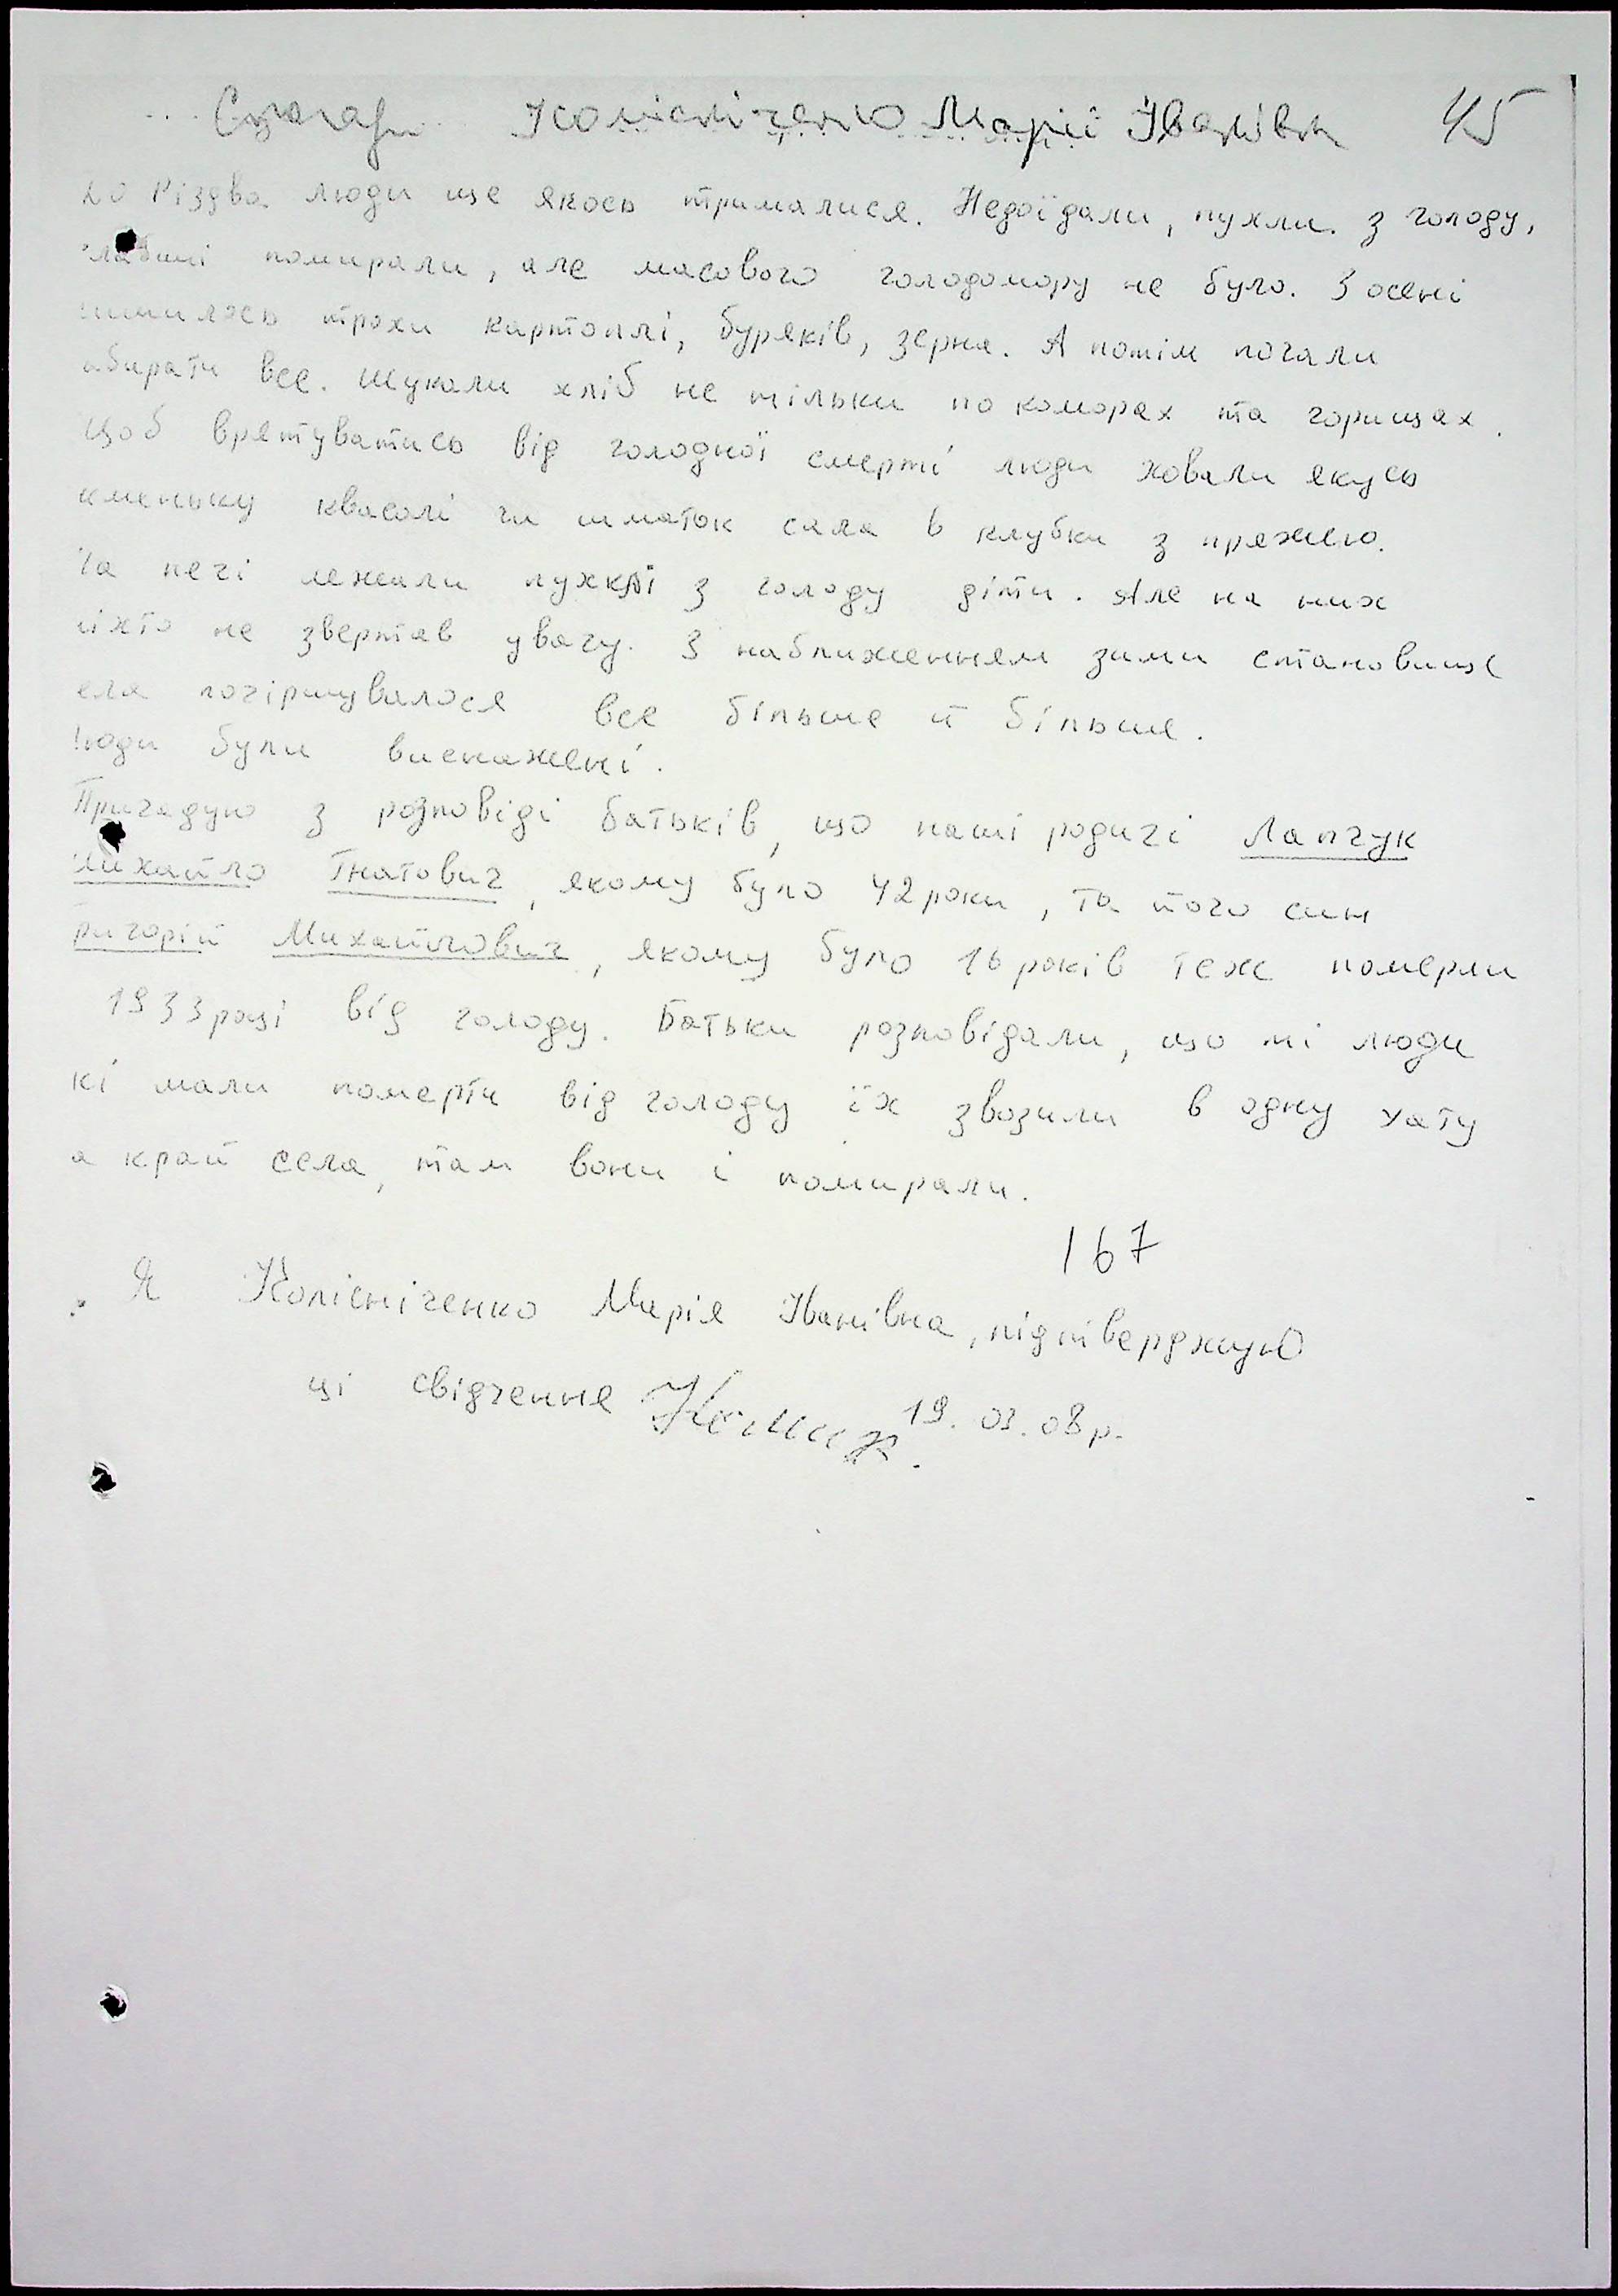 Колісніченко Марії Іванівни 45
до Різдва люди ще якось трималися. Недоїдали, пухли з голоду,
слабші помирали, але масового голодомору не було. З осені
лишилось трохи картоплі, буряків, зерна. А потім почали
абирати все. Шукали хліб не тільки по коморах та горищах.
Щоб врятуватись від голодної смерті люди ховали якусь
жменьку квасолі чи шматок сала в клубки з пряжею.
На печі лежали пухкі з голоду діти. Але на них
ніхто не звертав увагу. З наближенням зими становище
села погіршувалося все більше й більше.
Люди були виснажені.
Пригадую з розповіді батьків, що наші родичі Лапчук
Михайло Гнатович, якому було 42 роки, та його син
ригорій Михайлович, якому було 16 років теж померли
1933 році від голоду. Батьки розповідали, що ті люди
кі мали померти від голоду їх звозили в одну хату
а край села, там вони і помирали.
167
Я Колісніченко Марія Іванівна, підтверджую
ці свідчення 19.03.08 р.